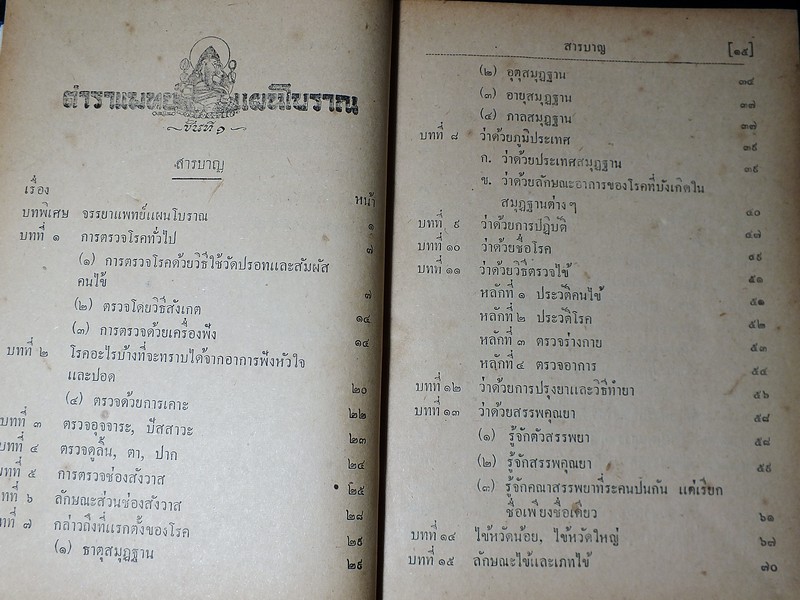 ตำราแพทย์แผนโบราณ
ขั้นที่ ๑
สารบาญ
เรื่อง หน้า
บทพิเศษ จรรยาแพทย์แผนโบราณ ๑
บทที่ ๑ การตรวจโรคทั่วไป ๗
(๑) การตรวจโรคด้วยวิธีใช้วัดปรอทและสัมผัส
คนไข้ ๗
(๒) ตรวจโดยวิธีสังเกต ๑๔
(๓) การตรวจด้วยเครื่องฟัง ๑๔
บทที่ ๒ โรคอะไรบ้างที่จะทราบได้จากอาการฟังหัวใจ
และปอด ๒๐
(๔) ตรวจด้วยการเคาะ ๒๒
บทที่ ๓ ตรวจอุจจาระ, ปัสสาวะ ๒๓
บทที่ ๔ ตรวจดูลิ้น, ตา, ปาก ๒๔
บทที่ ๕ การตรวจช่องสังวาส ๒๕
บทที่ ๖ ลักษณะส่วนช่องสังวาส ๒๘
บทที่ ๗ กล่าวถึงที่แรกตั้งของโรค ๒๙
(๑) ธาตุสมุฏฐาน ๒๙
สารบาญ [๑๕]
(๒) อุตุสมุฏฐาน ๓๔
(๓) อายุสมุฏฐาน ๓๗
(๔) กาลสมุฏฐาน ๓๗
บทที่ ๘ ว่าด้วยภูมิประเทศ ๓๙
ก. ว่าด้วยประเทศสมุฏฐาน ๓๙
ข. ว่าด้วยลักษณะอาการของโรคที่บังเกิดใน
สมุฏฐานต่าง ๆ ๔๐
บทที่ ๙ ว่าด้วยการปฏิบัติ ๔๗
บทที่ ๑๐ ว่าด้วยชื่อโรค ๔๙
บทที่ ๑๑ ว่าด้วยวิธีตรวจไข้ ๕๑
หลักที่ ๑ ประวัติคนไข้ ๕๑
หลักที่ ๒ ประวัติโรค ๕๒
หลักที่ ๓ ตรวจร่างกาย ๕๓
หลักที่ ๔ ตรวจอาการ ๕๔
บทที่ ๑๒ ว่าด้วยการปรุงยาและวิธีทำยา ๕๖
บทที่ ๑๓ ว่าด้วยสรรพคุณยา ๕๘
(๑) รู้จักตัวสรรพยา ๕๘
(๒) รู้จักสรรพคุณยา ๕๙
(๓) รู้จักคณาสรรพยาที่ระคนปนกัน แต่เรียก
ชื่อเพียงชื่อเดียว ๖๑
บทที่ ๑๔ ไข้หวัดน้อย, ไข้หวัดใหญ่ ๖๗
บทที่ ๑๕ ลักษณะไข้และเภทไข้ ๗๐